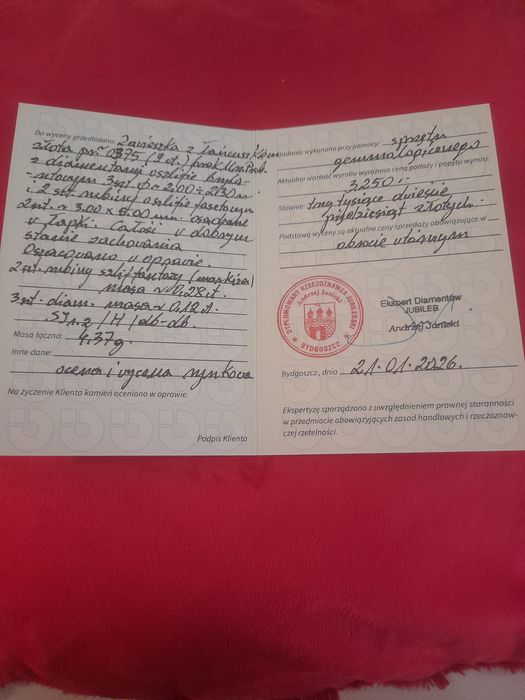 Do wyceny przedłożono: Zawieszka z łańcuszkiem
złota pr. 0,375 (9 ct.)
z diamentami oszlifie brylan-
-towym 3szt. φ ~ 2.00 ÷ 2.10 m
i 2 szt. rubiny oszlifie fasetowym
2szt. ~ 3.00 x 5.00 mm. osadzone
w łapki. Całość w dobrym
stanie zachowania
Opracowano w oprawie.
2szt. rubiny szlif fantazy (markiza)
masa ~ 0.28 ct.
3szt. diam. masa ~ 0.12 ct
SI1-2 / H / db-db.
Masa łączna: 4,37g.
Inne dane:
ocena i wycena rynkowa
Na życzenie Klienta kamień oceniono w oprawie.
Podpis Klienta
Badania wykonano przy pomocy: sprzętu
gemmologicznego
Aktualna wartość wyrobu wyrażona ceną podaży i popytu wynosi:
3.250,-
Słownie: trzy tysiące dwieście
pięćdziesiąt złotych.
Podstawą wyceny są aktualne ceny sprzedaży obowiązujące w
obrocie wtórnym
DYPLOMOWANY RZECZOZNAWCA JUBILERSKI
Andrzej Janicki
BYDGOSZCZ
Ekspert Diamentów
JUBILER
Andrzej Janicki
Bydgoszcz, dnia 21.01.2026.
Ekspertyzę sporządzono z uwzględnieniem prawnej staranności
w przedmiocie obowiązujących zasad handlowych i rzeczoznaw-
czej rzetelności.